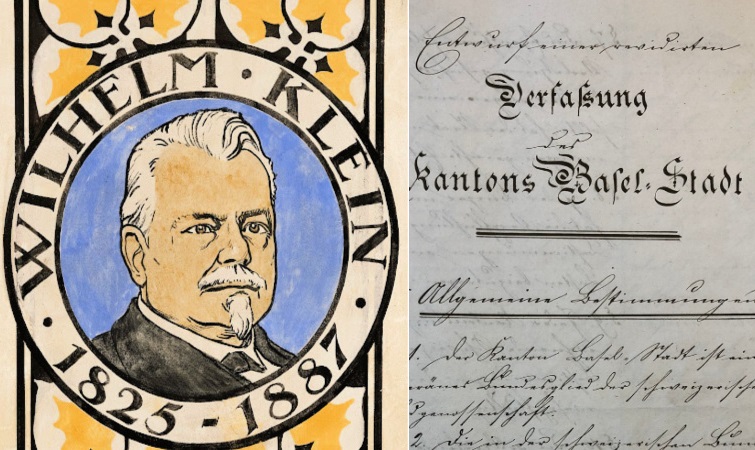 WILHELM · KLEIN
· 1825 - 1887 ·
Entwurf einer revidirten
Verfaßung
des
Kantons Basel-Stadt
Allgemeine Bestimmungen
1. Der Kanton Basel-Stadt ist ein
Bundesglied der schweizerisch
dgenossenschaft.
2. Die in der schweizerischen Bun